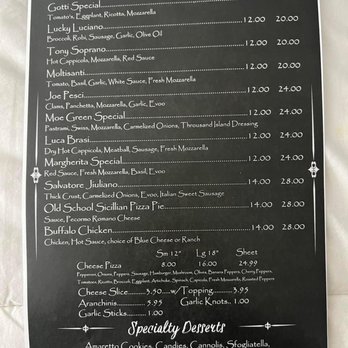 Gotti Special
Tomato's, Eggplant, Ricotta, Mozzarella
Lucky Luciano 12.00 20.00
Broccoli, Robi, Sausage, Garlic, Olive Oil
Tony Soprano 12.00 20.00
Hot Cappicola, Mozzarella, Red Sauce
Moltisanti 12.00 20.00
Tomato, Basil, Garlic, White Sauce, Fresh Mozzarella
Joe Pesci 12.00 24.00
Clams, Panchetta, Mozzarella, Garlic, Evoo
Moe Green Special 12.00 24.00
Pastrami, Swiss, Mozzarella, Carmelized Onions, Throusand Island Dressing
Luca Brasi 12.00 24.00
Dry Hot Cappicola, Meatball, Sausage, Fresh Mozzarella
Margherita Special 14.00 28.00
Red Sauce, Fresh Mozzarella, Basil, Evoo
Salvatore Jiuliano 14.00 28.00
Thick Crust, Carmelized Onions, Evoo, Italian Sweet Sausage
Old School Sicillian Pizza Pie 14.00 28.00
Sauce, Pecormo Romano Cheese
Buffalo Chicken 14.00 28.00
Chicken, Hot Sauce, choice of Blue Cheese or Ranch
Sm 12" Lg 18" Sheet
Cheese Pizza 8.00 16.00 24.99
Pepperoni, Onions, Peppers, Sausage, Hamburger, Mushroom, Olives, Banana Peppers, Cherry Peppers,
Tomatoes, Ricotta, Broccoli, Eggplant, Artichoke, Spinach, Capicola, Fresh Mozzarella, Roasted Peppers
Cheese Slice 3.50 w/Topping 3.95
Aranchinis 5.95 Garlic Knots.. 1.00
Garlic Sticks 1.00
Specialty Desserts
Amaretto Cookies, Candies, Cannolis, Sfogliatella,